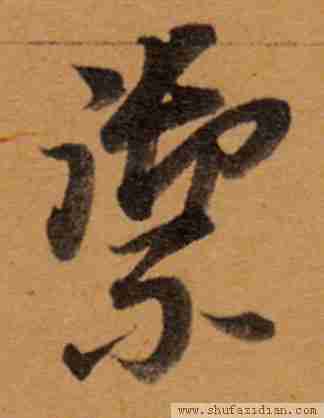 禦
www.shufazidian.com